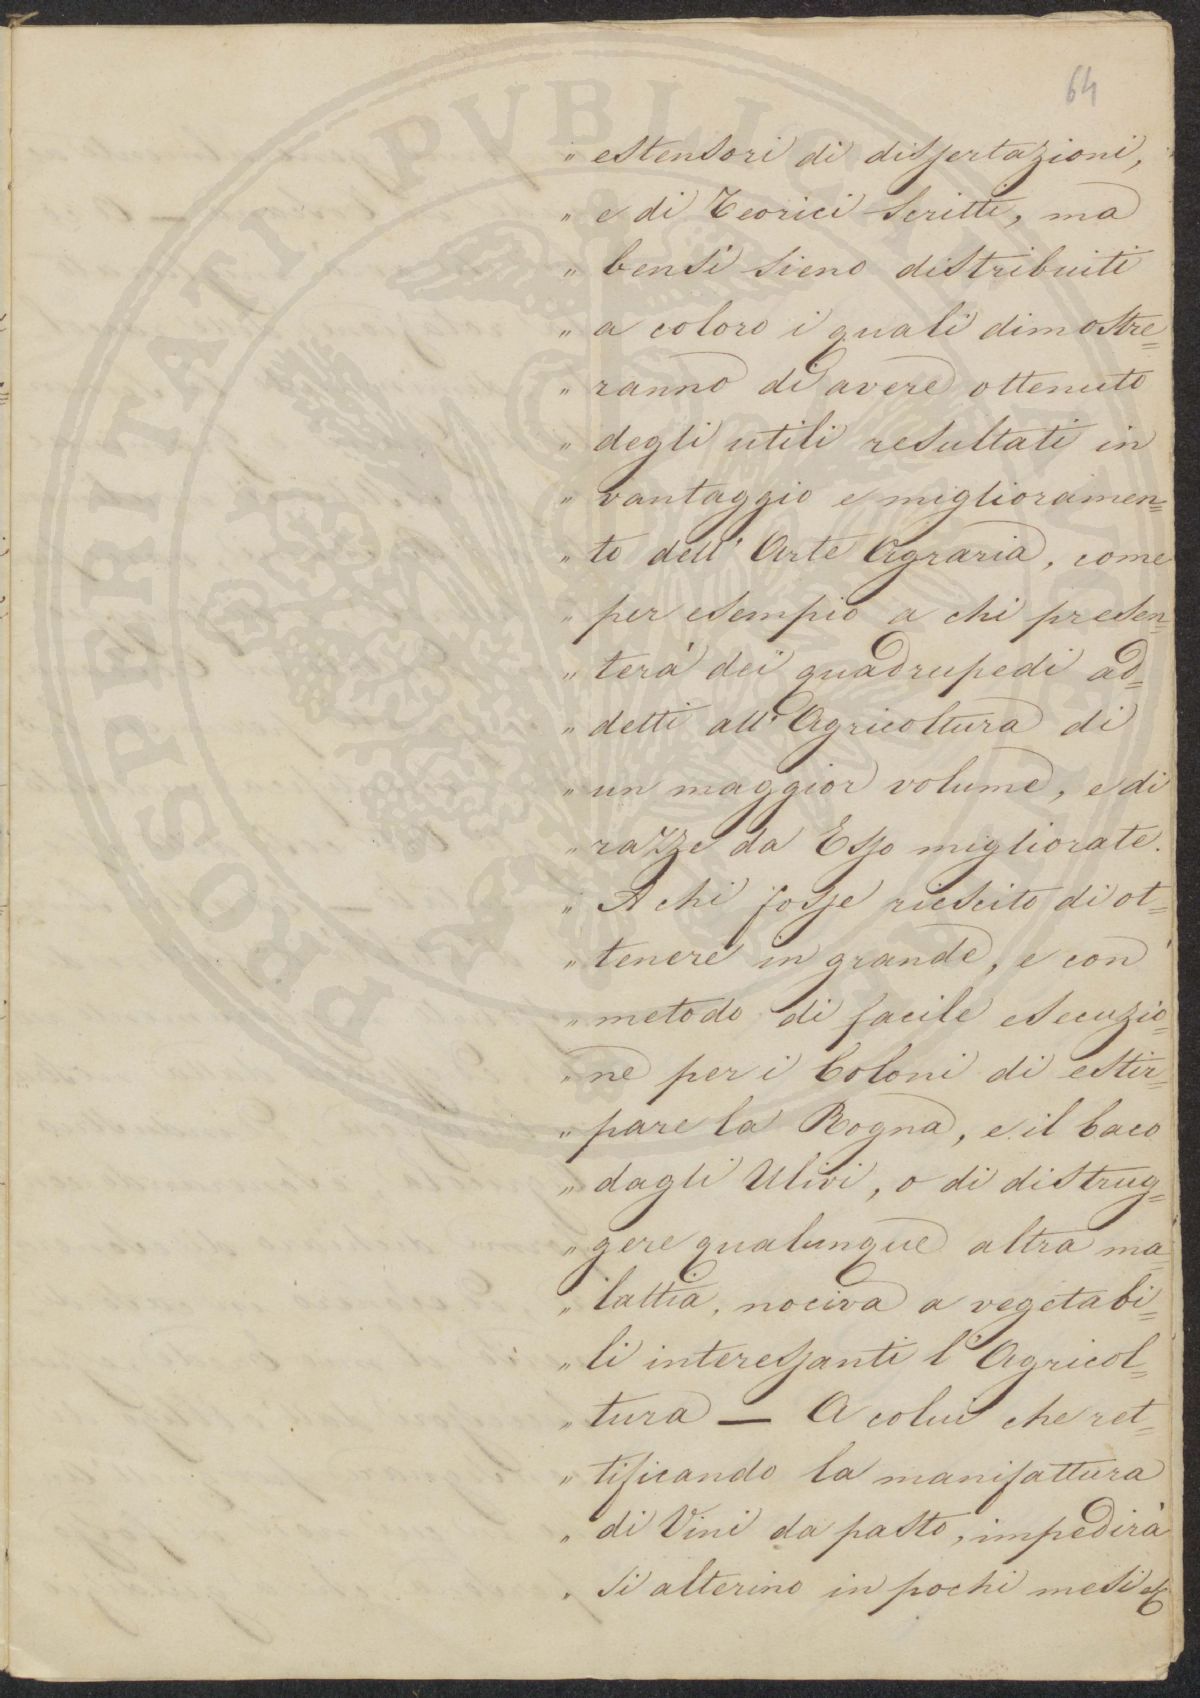 64
" estensori di dissertazioni,
" e di Teorici Scritti, ma
" bensì sieno distribuiti
" a coloro i quali dimostre=
" ranno di avere ottenuto
" degli utili resultati in
" vantaggio e miglioramen=
" to dell' Arte Agraria, come
" per esempio a chi presen=
" terà dei quadrupedi ad=
" detti all' Agricoltura di
" un maggior volume, e di
" razze da Esso migliorate.
" A chi fosse riescito di ot=
" tenere in grande, e con
" metodo di facile esecuzio=
" ne per i Coloni di estir=
" pare la Rogna, e il baco
" dagli Ulivi, o di distrug=
" gere qualunque altra ma=
" lattia, nociva a vegetabi=
" li interessanti l' Agricol=
" tura — A colui che ret=
" tificando la manifattura
" di Vini da pasto, impedirà
" si alterino in pochi mesi &
PROSPERITATI PVBLICAE